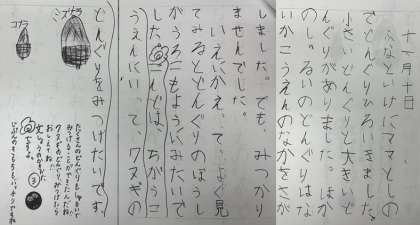 十一月十日
ふなといけにママとしの
でどんぐりひろいきました。
小さいどんぐりと大きいど
んぐりがありました。ほか
のし。るいのどんぐりはな
いかこうえんのなかをさが
しました。でも、みつかり
ませんでした。
いえにかえ、てよく見
てみるとどんぐりのぼうし
がうろこもようみたいで
した。こんどは、ちがうこ
うえんにい、て、クヌギの
どんぐりをみつけたいです。
ミズナラ
コナラ
たくさんのどんぐりを
みつけることができたんだね。
クヌギのどんぐり、みつけたら
おしえてね。